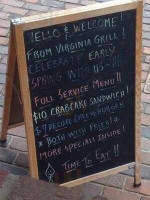 HELLO & WELCOME!
FROM VIRGINIA GRILL!
CELEBRATE EARLY
SPRING WITH US-
FULL SERVICE MENU!!
$10 CRABCAKE SANDWICH!
$7 BURGER
* BOTH WITH FRIES! *
MORE SPECIALS INSIDE!
TIME TO EAT!!